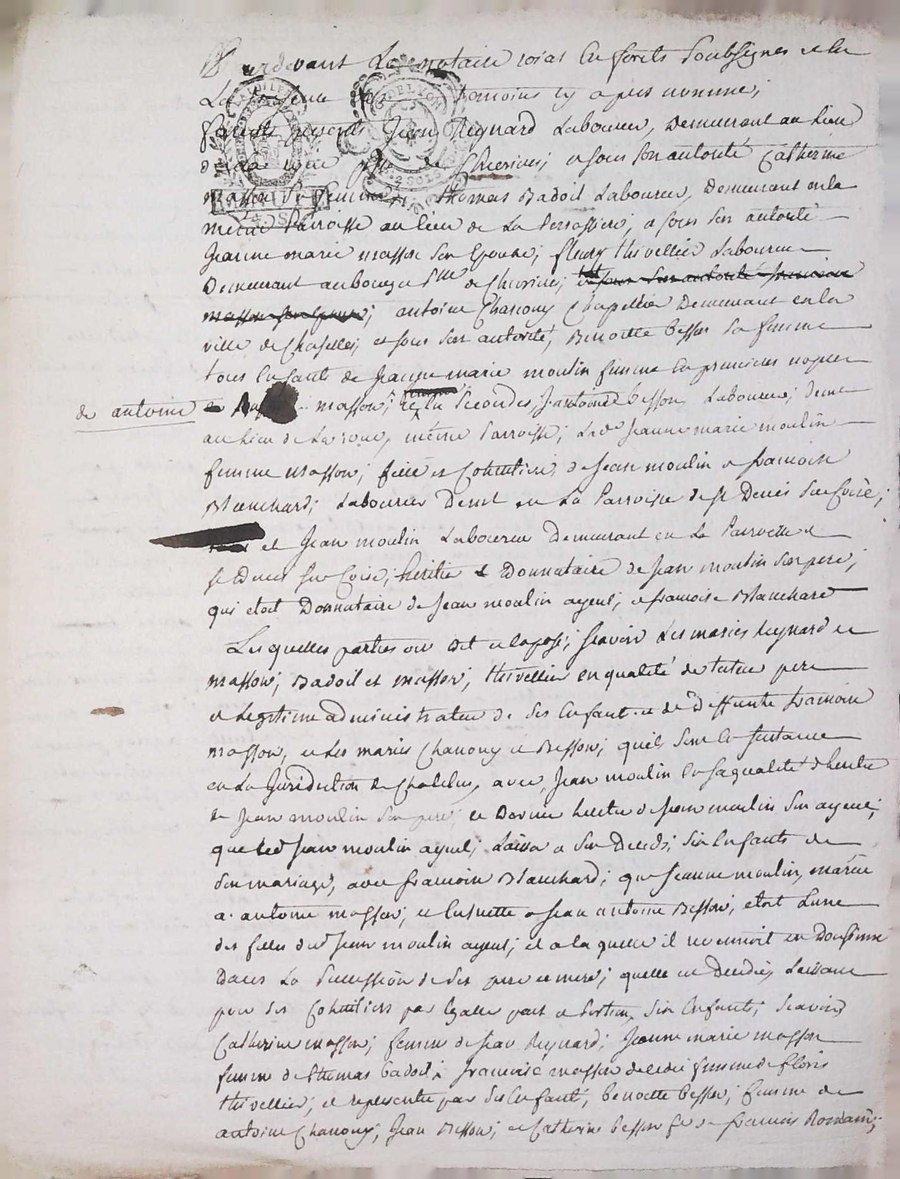 Pardevant Le notaire roial en forêts soubsignés et en
La témoins cy apres nommés,
furent presents Jean Reynard Laboureur, Demeurant au Lieu
de de Chevrieres, et sous son autorité Catherine
masson sa femme, thomas Badoil Laboureur, Demeurant en la
même Parroisse au lieu de La a sous son autorité
Jeanne marie masson son Epouse; fleury thevellier Laboureur
Demeurant au bourg et psse de Chevrieres; et sous son autorité francoise
masson son Epouse; antoine Chanouy Chapellier Demeurant en la
ville de Chaselles, et sous son autorité, Benoitte besson sa femme
tous Enfants de Jeanne marie moulin femme En premieres nopces
de antoine masson; et en secondes, J. antoine besson Laboureur; demt
au Lieu de La roue, même Parroisse; Lade Jeanne marie moulin
femme masson; fille et Cohéritiere, de Jean moulin et francoise
Blanchard; Laboureur demt en La Parroisse de st Denis sur Coise;
et Jean moulin Laboureur Demeurant en La Parroisse de
st Denis sur Coise; héritier et Donnataire de Jean moulin son pere;
qui etoit Donnataire de Jean moulin ayeul, et francoise Blanchard
Lesquelles parties ont dit et Exposé; scavoir Les mariés Reynard et
masson; Badoil et masson; thevellier en qualité de tuteur pere
et Legitime administrateur de ses Enfants et de Deffunte francoise
masson, et Les mariés Chanouy et Besson; quils sont En instance
en La Juridiction de Chatelus, avec Jean moulin En sa qualité d'heritier
de Jean moulin son pere; et Devenu heritier de Jean moulin son ayeul;
que led Jean moulin ayeul; Laissa a son Deceds; six Enfants de
son mariage, avec francoise Blanchard; que Jeanne moulin, mariée
a antoine masson; et Ensuitte a Jean antoine Besson, etoit L'une
des filles dud Jean moulin ayeul; et a la quelle il revenoit un Douzieme
Dans La Succession de ses pere et mere; quelle est Decedée, Laissant
pour ses Cohéritiers par Egalle part et portion, six Enfants; scavoir,
Catherine masson; femme de Jean Reynard; Jeanne marie masson
femme de thomas badoil; francoise masson decedée femme de floris
thevellier; et representée par ses Enfants, benoitte besson; femme de
antoine Chanouy; Jean Besson; et Catherine besson fe de francois Romain;